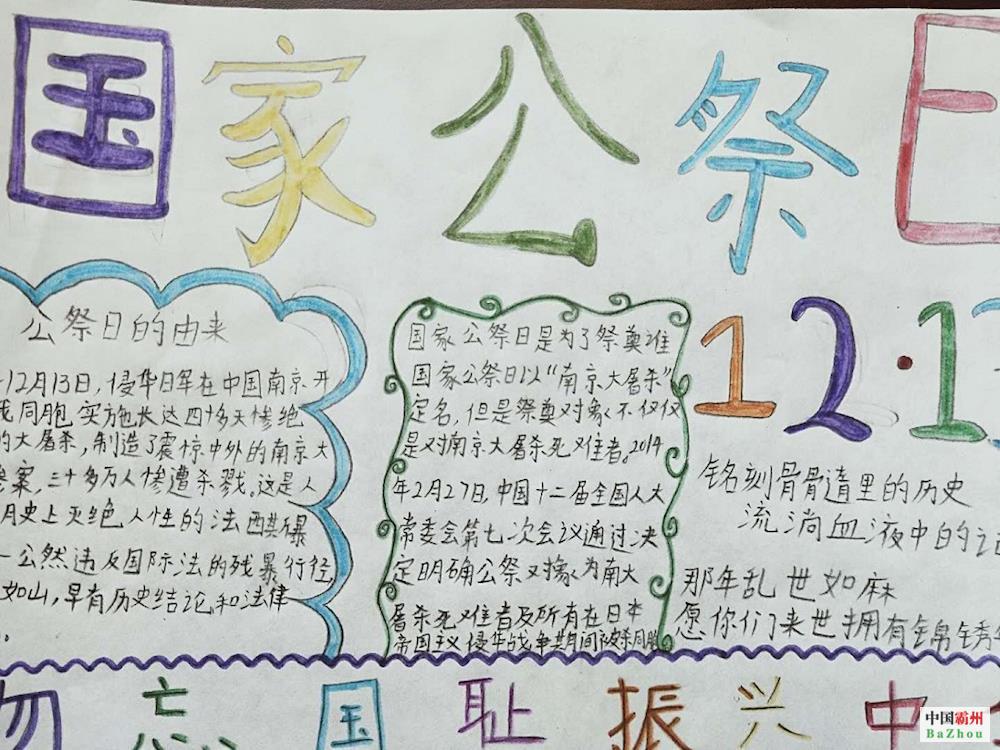 国家公祭日
公祭日的由来
12月13日,侵华日军在中国南京开
我同胞实施长达四十多天惨绝
的大屠杀,制造了震惊中外的南京大
惨案,三十多万人惨遭杀戮。这是人
历史上灭绝人性的法西斯暴
公然违反国际法的残暴行径,
如山,早有历史结论和法律
国家公祭日是为了祭奠难
国家公祭日以“南京大屠杀”
定名,但是祭奠对象不仅仅
是对南京大屠杀死难者。2014
年2月27日,中国十二届全国人大
常委会第七次会议通过决
定明确公祭对象为南大
屠杀死难者及所有在日本
帝国主义侵华战争期间被杀同胞
12·13
铭刻骨骨遗里的历史
流淌血液中的记
那年乱世如麻
愿你们来世拥有锦锈
勿忘国耻振兴中
中国霸州
BaZhou